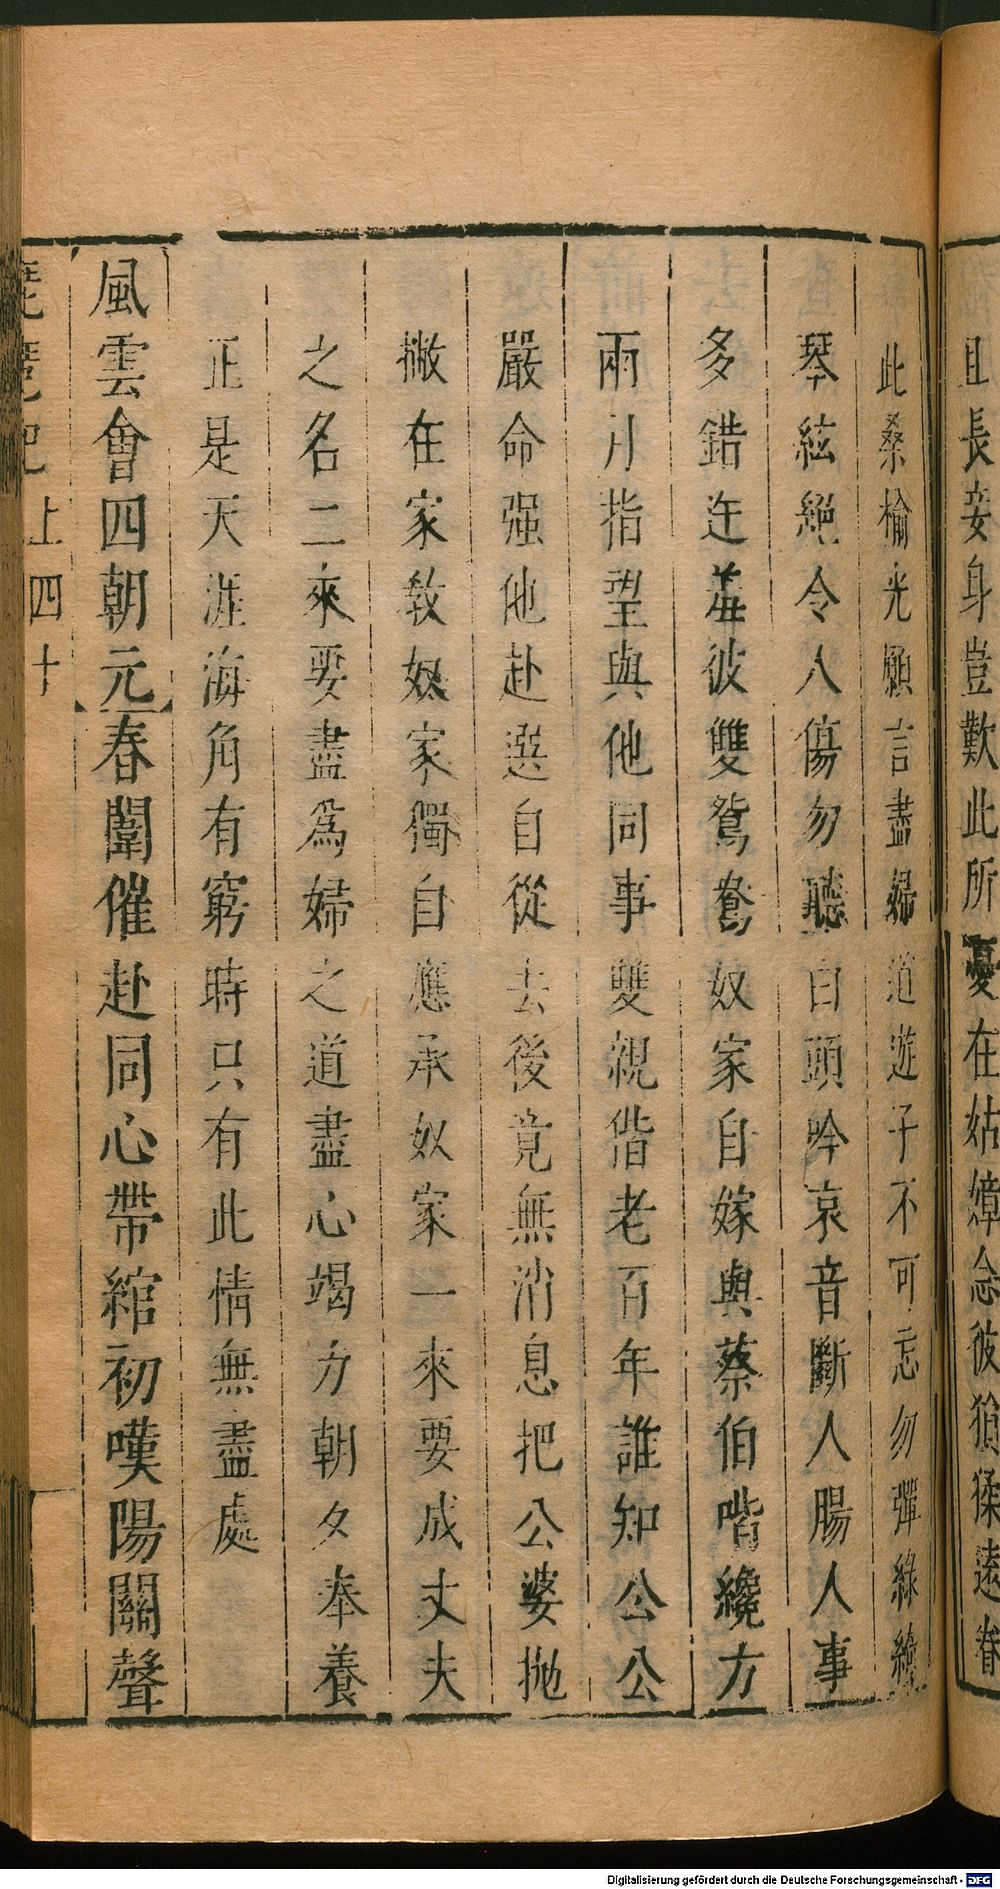 且長妾身豈歎此所憂在姑嫜念彼猿猱遠眷
此桑榆光願言盡婦道遊子不可忘勿彈綠綺
琴絃絕令人傷勿聽白頭吟哀音斷人腸人事
多錯迕羞彼雙鴛鴦奴家自嫁與蔡伯喈纔方
兩月指望與他同事雙親偕老百年誰知公公
嚴命强他赴選自從去後竟無消息把公婆拋
撇在家教奴家獨自應承奴家一來要成丈夫
之名二來要盡爲婦之道盡心竭力朝夕奉養
正是天涯海角有窮時只有此情無盡處
風雲會四朝元春闈催赴同心帶綰初嘆陽關聲
琵琶記 上四十
Digitalisierung gefördert durch die Deutsche Forschungsgemeinschaft - DFG